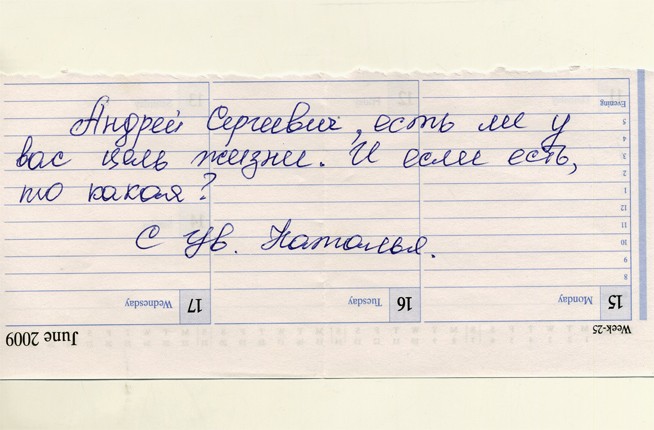 Андрей Сергеевич, есть ли у
вас цель жизни. И если есть,
то какая?
С Ув. Наталья.
Evening
5
4
3
2
1
12
11
10
9
8
17 Wednesday
16 Tuesday
15 Monday
June 2009
Week-25